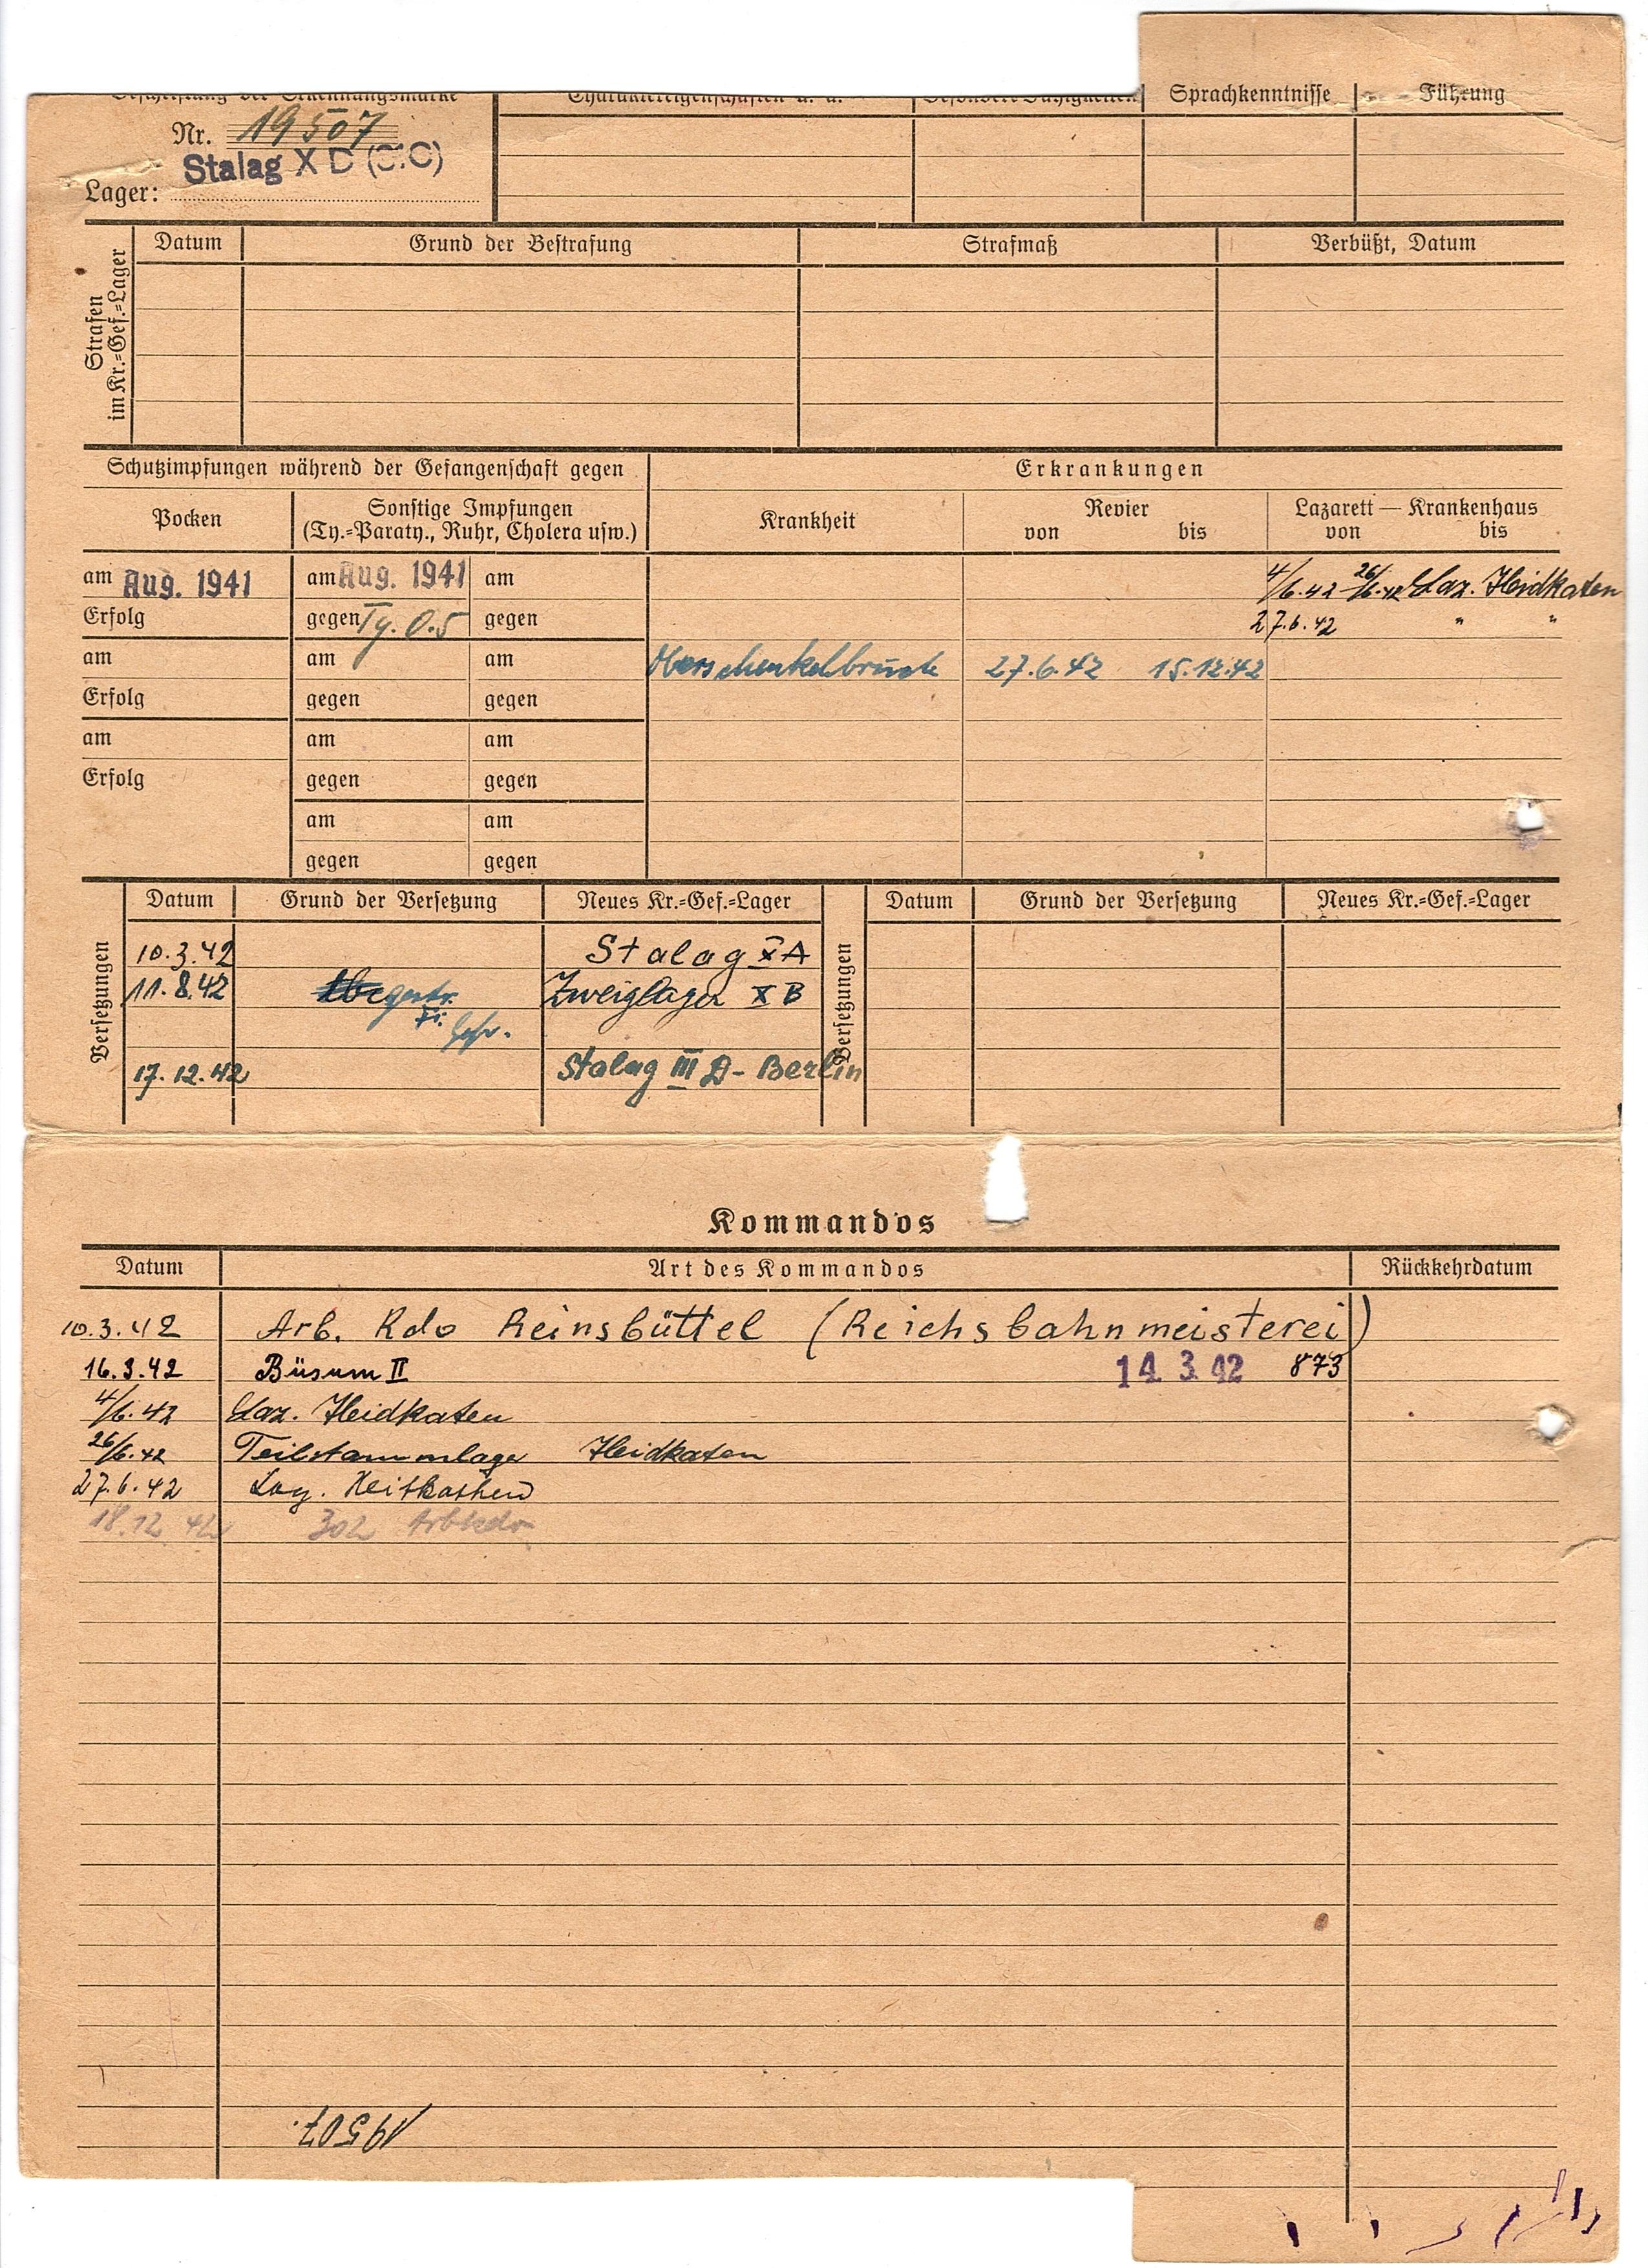 Beschriftung der Erkennungsmarke Charaktereigenschaften u. ä. Besondere Fähigkeiten Sprachkenntnisse Führung
Nr. 19507
Lager: Stalag X D (310)
Strafen im Kr.-Gef.-Lager
Datum Grund der Bestrafung Strafmaß Verbüßt, Datum
Schutzimpfungen während der Gefangenschaft gegen Erkrankungen
Pocken Sonstige Impfungen (Ty.-Paraty., Ruhr, Cholera usw.) Krankheit Revier Lazarett — Krankenhaus
von bis von bis
am Aug. 1941 am Aug. 1941 am 4/6.42 26/6.42 Laz. Heidkaten
Erfolg gegen Ty. 0.5 gegen 27.6.42 " "
am am am Oberschenkelbruch 27.6.42 15.12.42
Erfolg gegen gegen
am am am
Erfolg gegen gegen
am am
gegen gegen
Versetzungen Datum Grund der Versetzung Neues Kr.-Gef.-Lager Versetzungen Datum Grund der Versetzung Neues Kr.-Gef.-Lager
10.3.42 Stalag X A
11.8.42 Zweiglager X B
17.12.42 Stalag III D - Berlin
Kommandos
Datum Art des Kommandos Rückkehrdatum
10.3.42 Arb. Kdo Reinsbüttel (Reichsbahnmeisterei)
16.3.42 Büsum II 14. 3. 42 873
4/6.42 Laz. Heidkaten
26/6.42 Teilstammlager Heidkaten
27.6.42 Laz. Heitkathen
18.12 42 302 Arbkdo
19507.